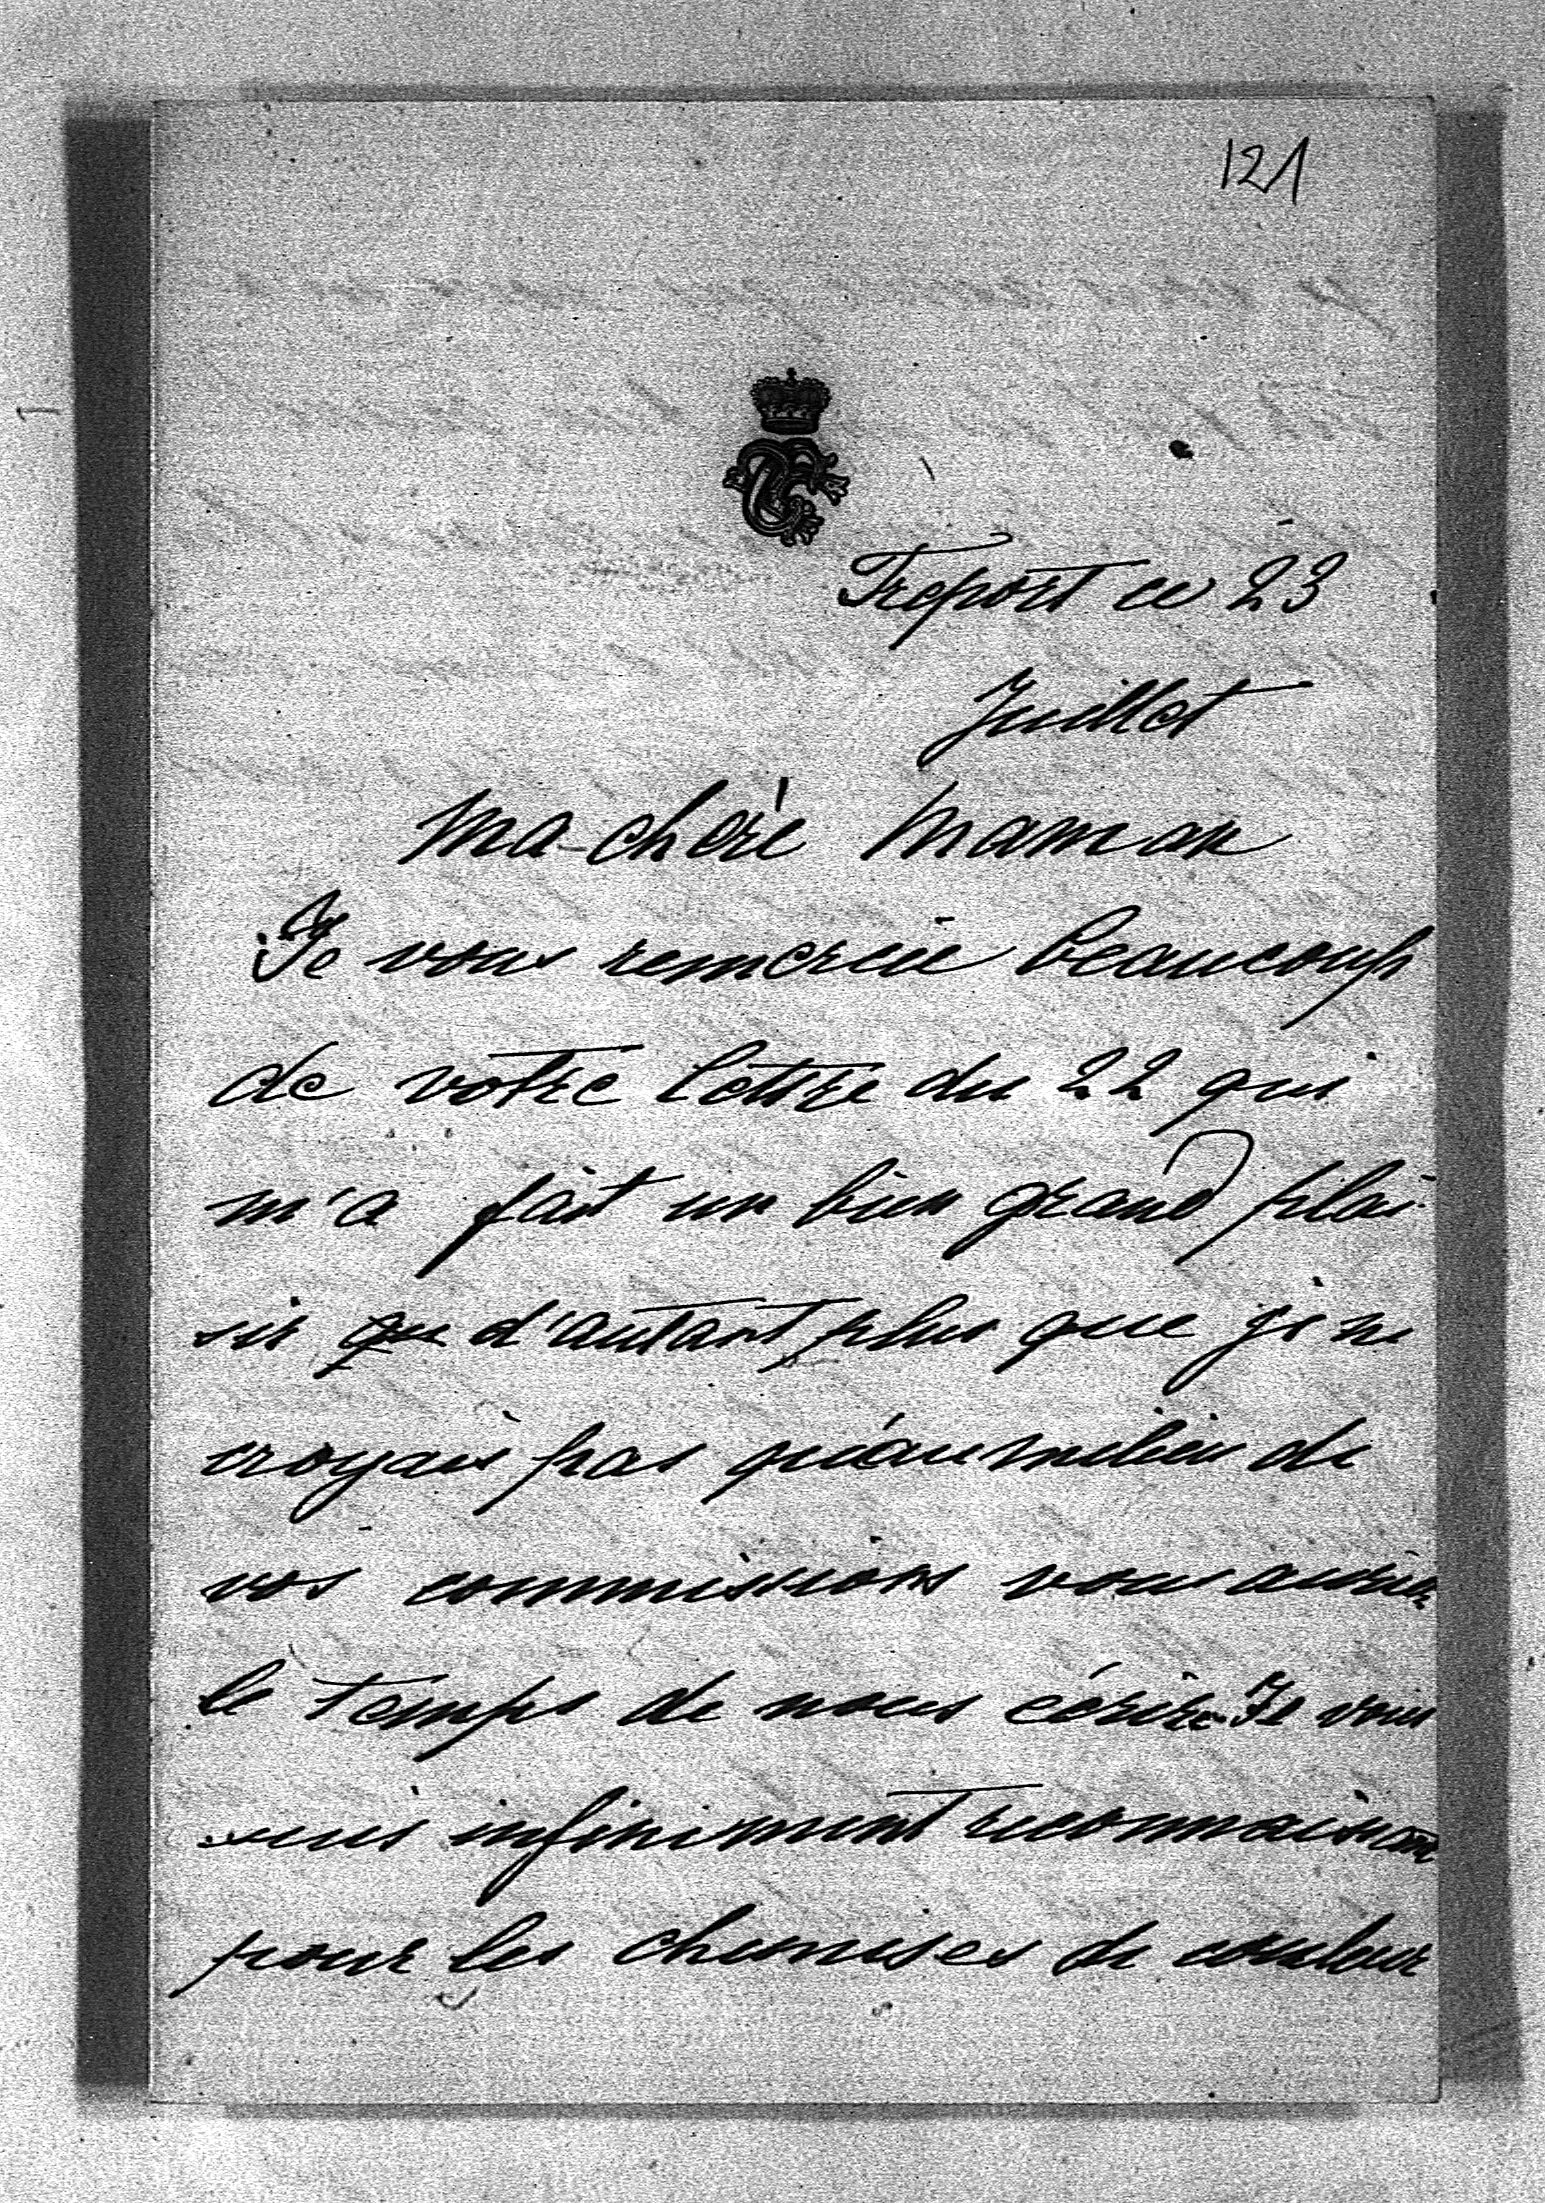 121
Treport ce 23
Juillet
Ma chère Maman
Je vous remercie beaucoup
de votre lettre du 22 qui
m'a fait un bien grand plai-
sir qu d'autant plus que je ne
croyais pas qu'au milieu de
vos commissions vous auriez
le temps de nous écrire. Je vous
suis infiniment reconnaissant
pour les chemises de couleur